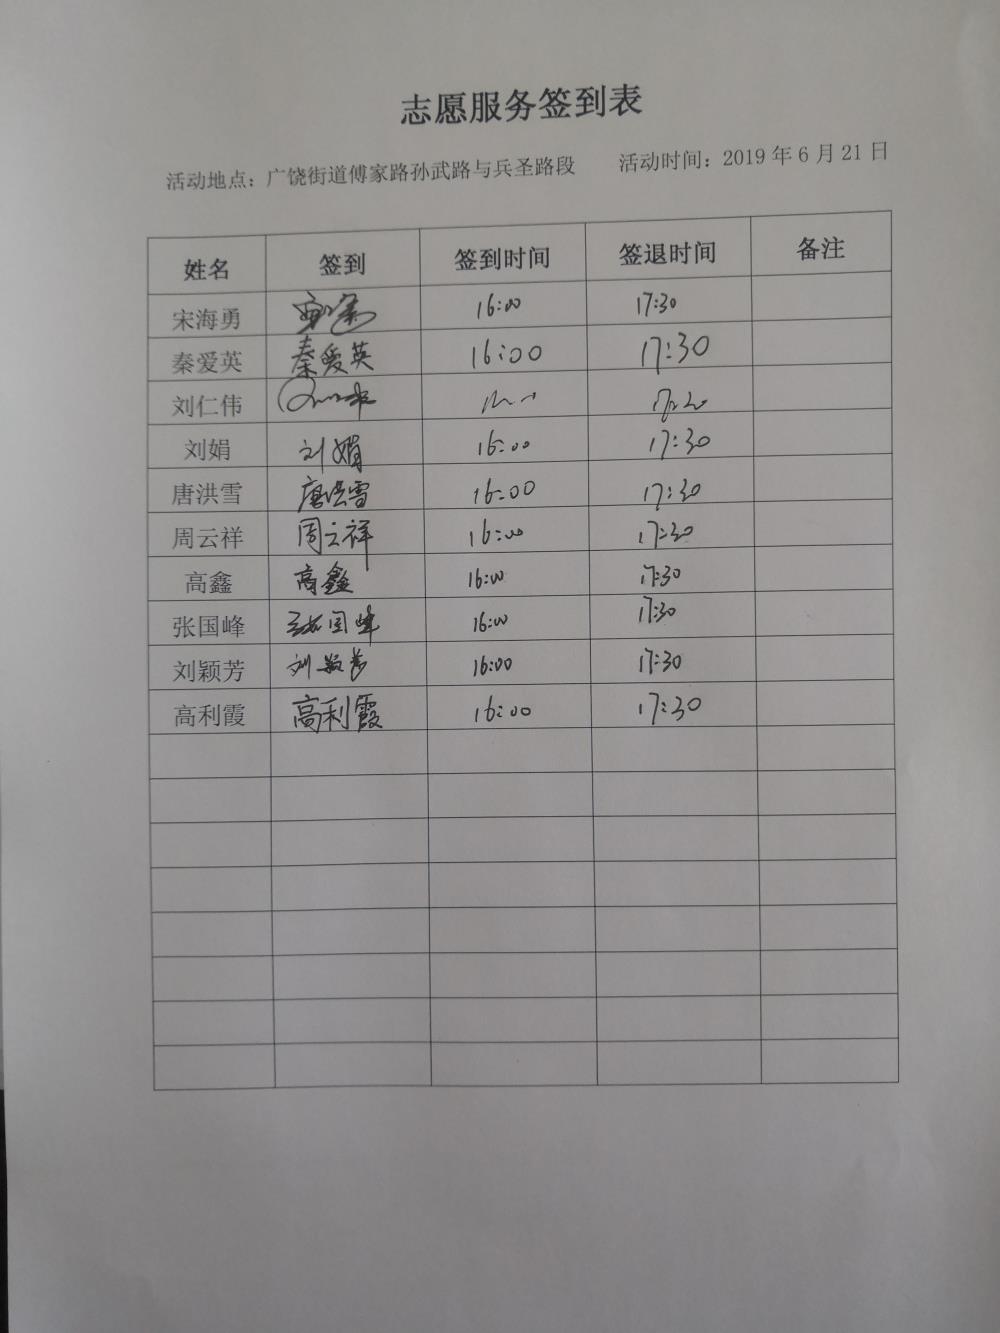 志愿服务签到表
活动地点：广饶街道傅家路孙武路与兵圣路段 活动时间：2019年6月21日
姓名 签到 签到时间 签退时间 备注
宋海勇 16:00 17:30
秦爱英 秦爱英 16:00 17:30
刘仁伟
刘娟 刘娟 16:00 17:30
唐洪雪 唐洪雪 16:00 17:30
周云祥 周云祥 16:00 17:30
高鑫 高鑫 16:00 17:30
张国峰 张国峰 16:00 17:30
刘颖芳 刘颖芳 16:00 17:30
高利霞 高利霞 16:00 17:30